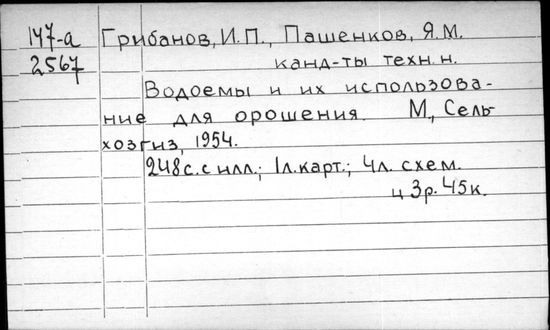 147-а Грибанов, И.П., Пашенков, Я.М.
2567 канд-ты техн. н.
Водоемы и их использова-
ние для орошения. М., Сель-
хозгиз, 1954.
248 с. с илл.; 1л. карт.; 4л. схем.
ц 3р. 45к.